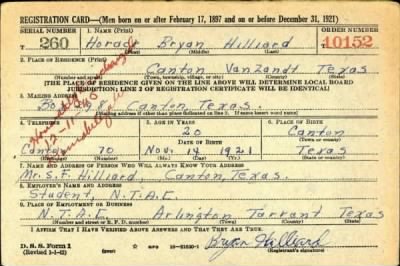 REGISTRATION CARD—(Men born on or after February 17, 1897 and on or before December 31, 1921)
SERIAL NUMBER 1. NAME (Print) ORDER NUMBER
T 260 Horace Bryan Hilliard 10152
(First) (Middle) (Last)
2. PLACE OF RESIDENCE (Print)
Canton VanZandt Texas
(Number and street) (Town, township, village, or city) (County) (State)
[THE PLACE OF RESIDENCE GIVEN ON THE LINE ABOVE WILL DETERMINE LOCAL BOARD
JURISDICTION; LINE 2 OF REGISTRATION CERTIFICATE WILL BE IDENTICAL]
3. MAILING ADDRESS
Canton, Texas.
[Mailing address if other than place indicated on line 2. If same insert word same]
4. TELEPHONE 5. AGE IN YEARS 6. PLACE OF BIRTH
20 Canton
DATE OF BIRTH (Town or county)
70 Nov. 14 1921 Texas
(State or country)
7. NAME AND ADDRESS OF PERSON WHO WILL ALWAYS KNOW YOUR ADDRESS
Mr. S. F. Hilliard, Canton, Texas.
8. EMPLOYER'S NAME AND ADDRESS
Student, N.T.A.C.
9. PLACE OF EMPLOYMENT OR BUSINESS
N.T.A.C. Arlington Tarrant Texas
(Number and street or R. F. D. number) (Town) (County) (State)
I AFFIRM THAT I HAVE VERIFIED ABOVE ANSWERS AND THAT THEY ARE TRUE.
D. S. S. Form 1
(Revised 1-1-42) (over) Bryan Hilliard
(Registrant's signature)